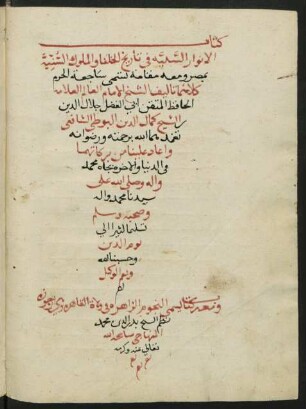 كتاب
الانوار السنية فى تاريخ الخلفا والملوك السنية
بمصر ومعه مقامة تسمى ساجعة الحرم
كلاهما تاليف الشيخ الامام العالم العلامة
الحافظ المتقن ابى الفضل جلال الدين
بن الشيخ كمال الدين السيوطى الشافعى
تغمدهما الله برحمته ورضوانه
واعاد علينا من بركاتهما
فى الدنيا والاخرة بجاه محمد
واله وصلى الله على
سيدنا محمد واله
وصحبه وسلم
تسليما كثيرا الى
يوم الدين
وحسبنا الله
ونعم الوكيل
النجوم الزاهرة فى ولاة القاهرة
نظم الشيخ بدر الدين محمد
المنهاجى سامحه الله
تعالى بمنه وكرمه